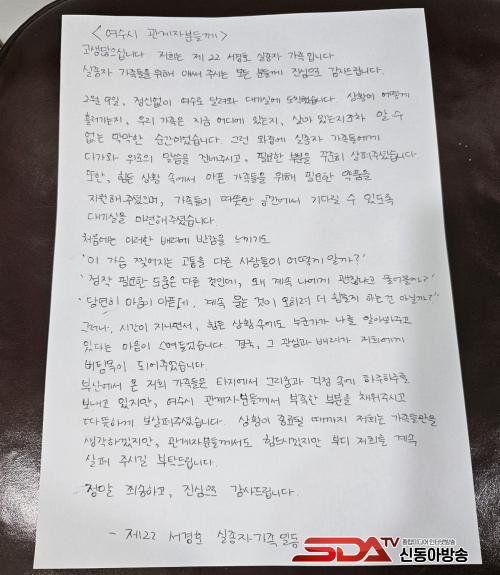 <여수시 관계자분들께>
고생많으십니다. 저희는 제22 서경호 실종자 가족입니다
실종자 가족들을 위해 애써 주시는 모든 분들께 진심으로 감사드립니다.
2월 9일, 정신없이 여수로 달려와 대기실에 도착했습니다. 상황이 어떻게
흘러가는지, 우리 가족은 지금 어디에 있는지, 살아 있는지조차 알 수
없는 막막한 순간이었습니다. 그런 와중에 실종자 가족들에게
다가와 위로의 말씀을 건네주시고, 필요한 부분을 꾸준히 살펴주셨습니다
또한, 힘든 상황 속에서 아픈 가족들을 위해 필요한 약품을
지원해주셨으며, 가족들이 따뜻한 공간에서 기다릴 수 있도록
대기실을 마련해주셨습니다.
처음에는 이러한 배려에 반감을 느끼기도
'이 가슴 찢어지는 고통을 다른 사람들이 어떻게 알까?'
'정작 필요한 도움은 다른 것인데, 왜 계속 나에게 괜찮냐고 물어볼까?'
'당연히 마음이 아픈데, 계속 묻는 것이 오히려 더 힘들게 하는 건 아닐까?'
그러나, 시간이 지나면서, 힘든 상황속에도 누군가가 나를 알아봐주고
있다는 마음이 스며들었습니다. 결국, 그 관심과 배려가 저희에게
버팀목이 되어주었습니다.
부산에서 온 저희 가족들은 타지에서 그리움과 걱정 속에 하루하루를
보내고 있지만, 여수시 관계자분들께서 부족한 부분을 채워주시고
따뜻하게 보살펴주셨습니다. 상황이 종료될 때까지 저희는 가족들만을
생각하겠지만, 관계자분들께서도 힘드시겠지만 부디 저희를 계속
살펴 주시길 부탁드립니다.
정말 죄송하고, 진심으로 감사드립니다.
- 제122 서경호 실종자가족 일동
SDATV 종합미디어 인터넷방송
신동아방송